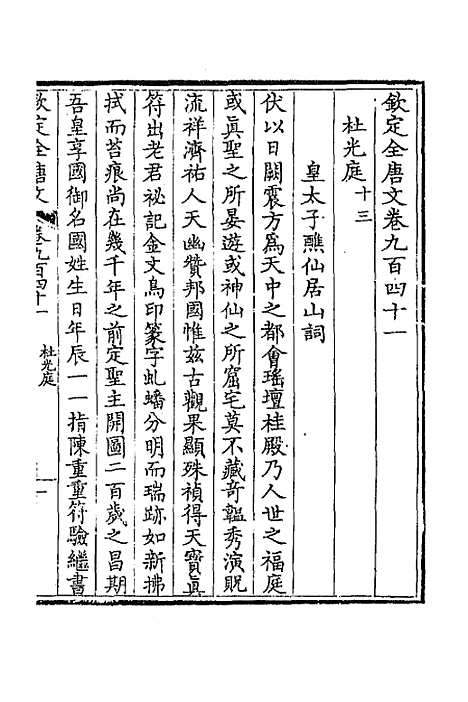 欽定全唐文卷九百四十一
杜光庭十三
皇太子醮仙居山詞
伏以日闕震方爲天中之都會瑤壇桂殿乃人世之福庭
或眞聖之所晏遊或神仙之所窟宅莫不藏奇韞秀演貺
流祥濟祐人天幽贊邦國惟茲古觀果顯殊禎得天寶眞
符出老君祕記金文鳥印篆字虬蟠分明而瑞跡如新拂
拭而苔痕尚在幾千年之前定聖主開圖二百歲之昌期
吾皇享國御名國姓生日年辰一一指陳重重符驗繼書
欽定全唐文
卷九百四十一
杜光庭
一